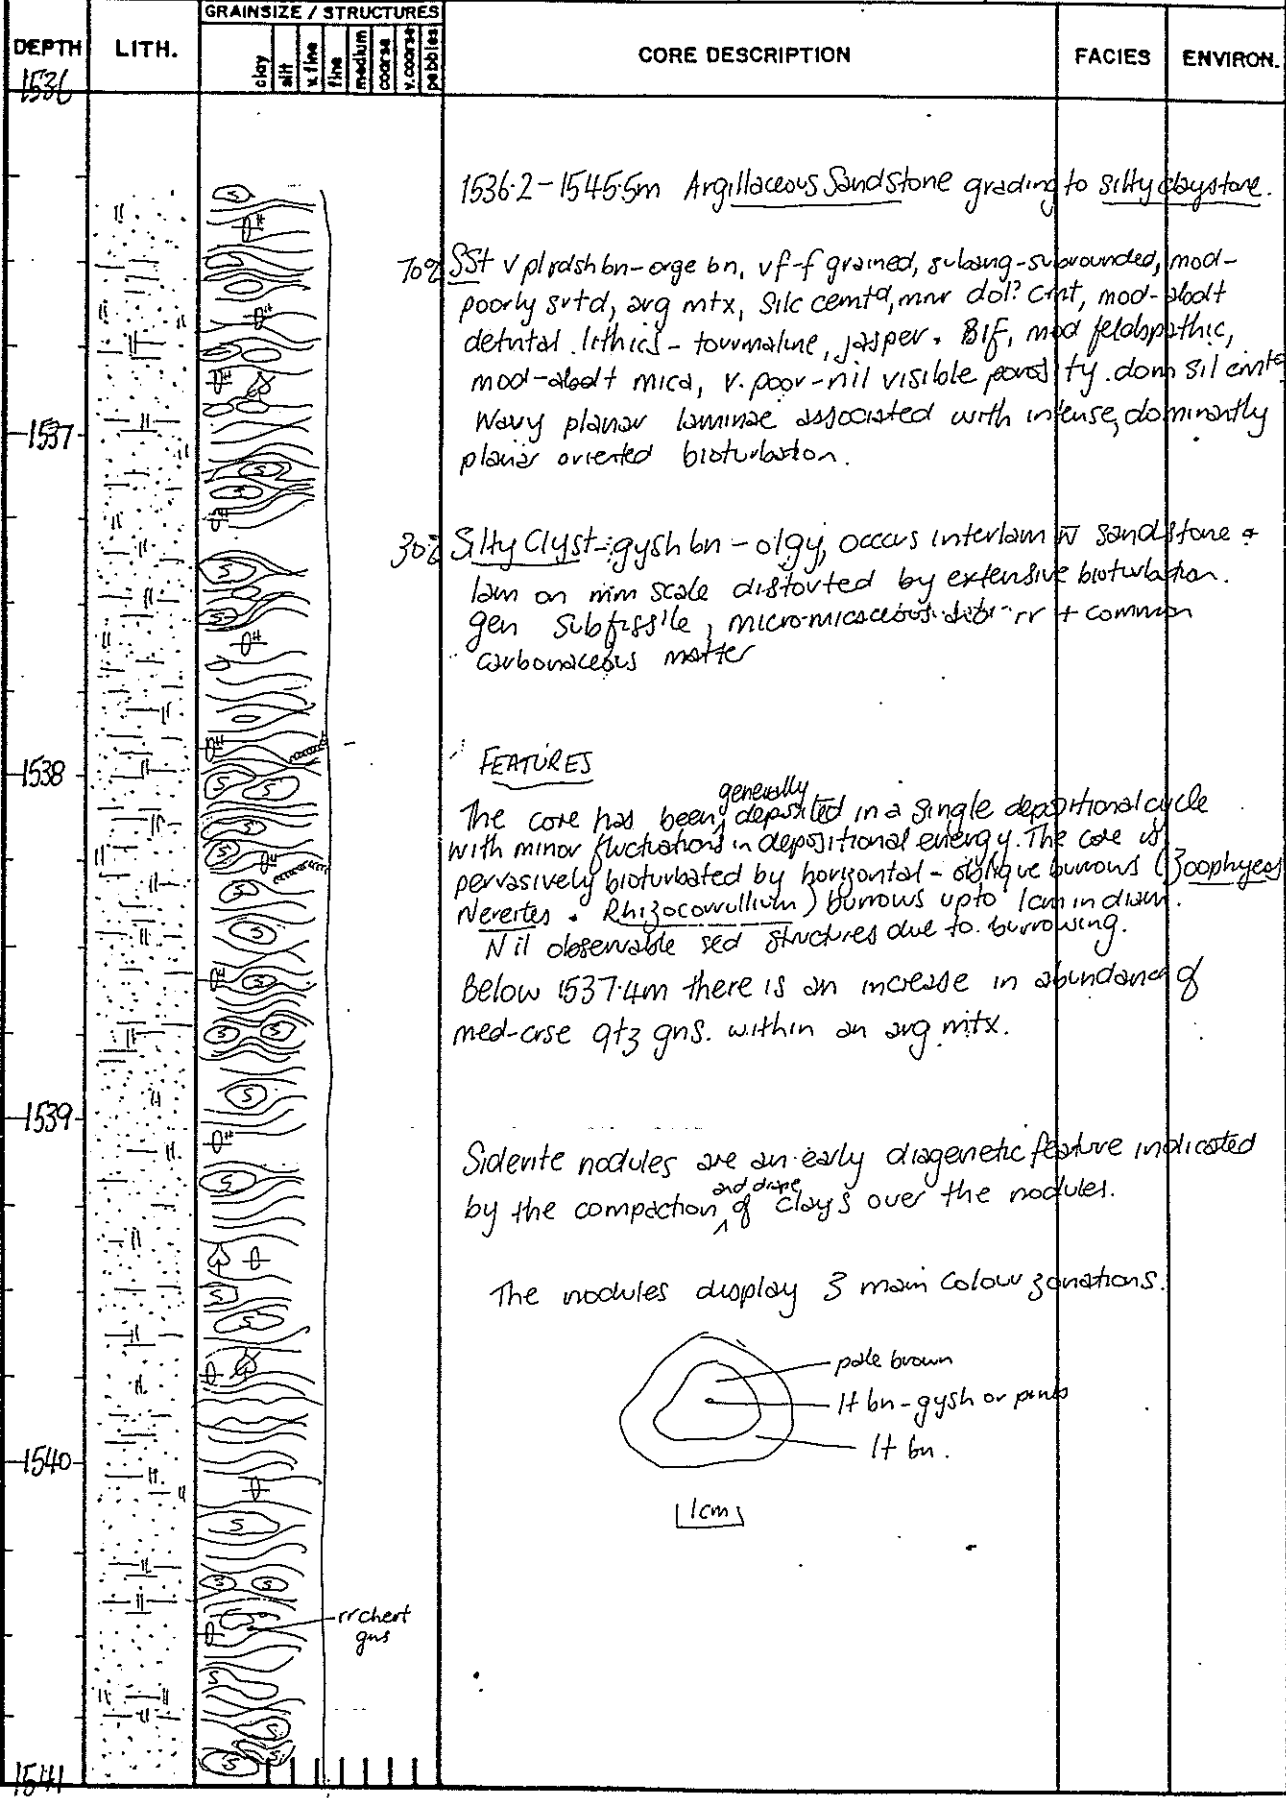 GRAINSIZE / STRUCTURES
DEPTH LITH. clay silt v. fine fine medium coarse v. coarse pebbles CORE DESCRIPTION FACIES ENVIRON.
1536
1536·2-1545·5m Argillaceous Sandstone grading to silty claystone.
70% SSt v pl rdsh bn-orge bn, vf-f grained, subang-subrounded, mod-
poorly srtd, arg mtx, silc cemtd, mnr dol? cmt, mod-abdt
detrital lithics - tourmaline, jasper + BIF, mod feldspathic,
mod-abdt mica, v. poor-nil visible porosity. dom sil
Wavy planar laminae associated with intense, dominantly
1537
planar oriented bioturbation.
30% Silty Clyst - gysh bn - olgy, occurs interlam w̄ sandstone +
lam on mm scale distorted by extensive bioturbation.
gen subfissile, micro-micaceous rr + common
carbonaceous matter
1538
FEATURES
generally
The core has been deposited in a single depositional cycle
with minor fluctuations in depositional energy. The core is
pervasively bioturbated by horizontal - oblique burrows (Zoophycos
Nereites + Rhizocorrullium) burrows upto 1cm in diam.
Nil observable sed structures due to burrowing.
Below 1537·4m there is an increase in abundance of
med-crse qtz gns. within an arg mtx.
1539
Siderite nodules are an early diagenetic feature indicated
and drape
by the compaction of clays over the nodules.
The nodules display 3 main colour zonations.
pale brown
lt bn - gysh or pink
lt bn.
1540
1cm
rr chert
gns
1541